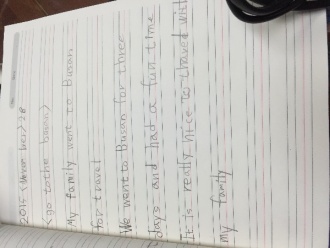 2015 <december> 28
<go to the busan>
My family went to Busan
for travel
We went to Busan for three
days and had a fun time
It is really nice to traved with
my family